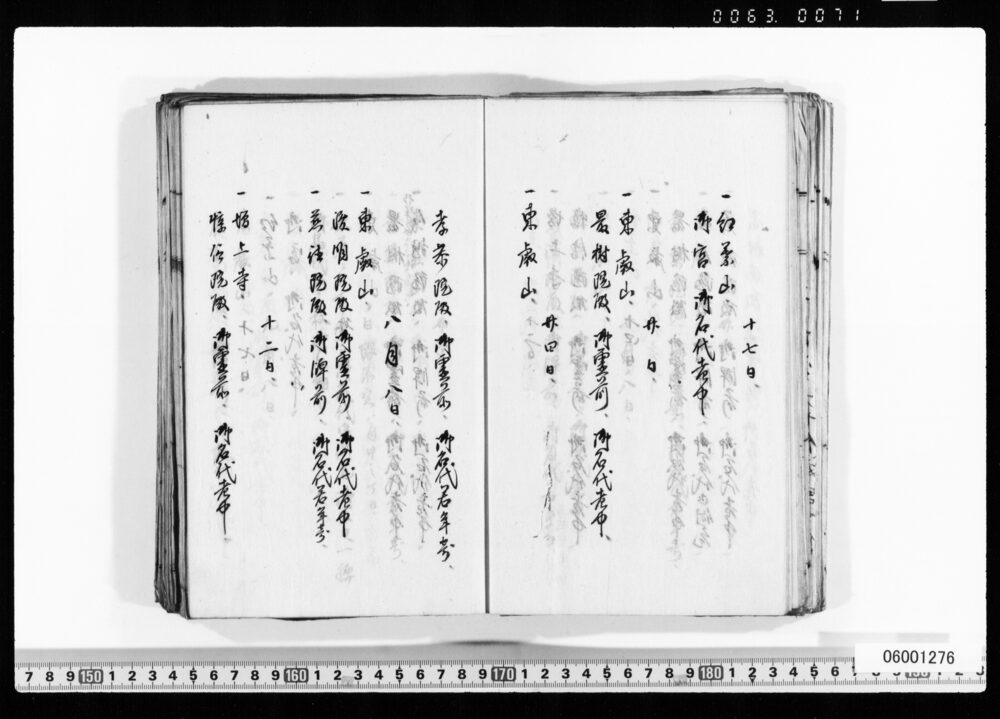 0063.0071
十七日、
一 紅葉山、
御宮、御名代老中、
廿日、
一 東叡山、
最樹院殿、御霊前、御名代老中、
廿四日、
一 東叡山、
孝恭院殿、御霊前、御名代若年寄、
八月八日、
一 東叡山、
浚明院殿、御霊前、御名代老中
一 御牌前、御名代若年寄、
十二日、
一 増上寺、
惇信院殿、御霊前、御名代老中、
7 8 9 150 1 2 3 4 5 6 7 8 9 160 1 2 3 4 5 6 7 8 9 170 1 2 3 4 5 6 7 8 9 180 1 2 3 4 5 6
06001276